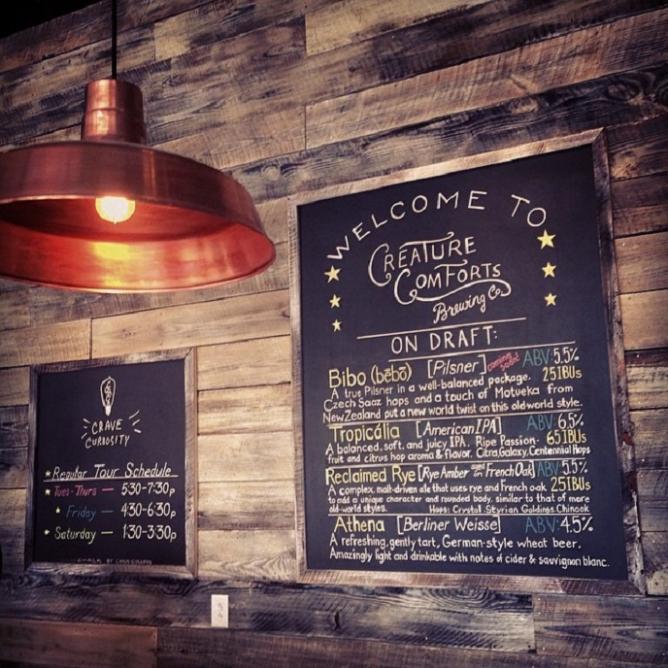 WELCOME TO
CREATURE
COMFORTS
Brewing Co
ON DRAFT:
Bibo (bēbō) [Pilsner] coming soon! ABV: 5.5%
A true Pilsner in a well-balanced package. 25IBUs
Czech Saaz hops and a touch of Motueka from
New Zealand put a new world twist on this old world style.
Tropicália [American IPA] ABV: 6.5%
A balanced, soft, and juicy IPA. Ripe Passion- 65IBUs
fruit and citrus hop aroma & flavor. Citra, Galaxy, Centennial Hops
Reclaimed Rye [Rye Amber French Oak] ABV: 5.5%
A complex, malt-driven ale that uses rye and French oak 25IBUs
to add a unique character and rounded body, similar to that of more
old-world styles. Hops: Crystal Styrian Goldings Chinook
Athena [Berliner Weisse] ABV: 4.5%
A refreshing, gently tart, German-style wheat beer.
Amazingly light and drinkable with notes of cider & sauvignon blanc.
CRAVE
CURIOSITY
Regular Tour Schedule
Tues-Thurs — 5:30-7:30p
Friday — 4:30-6:30p
Saturday — 1:30-3:30p